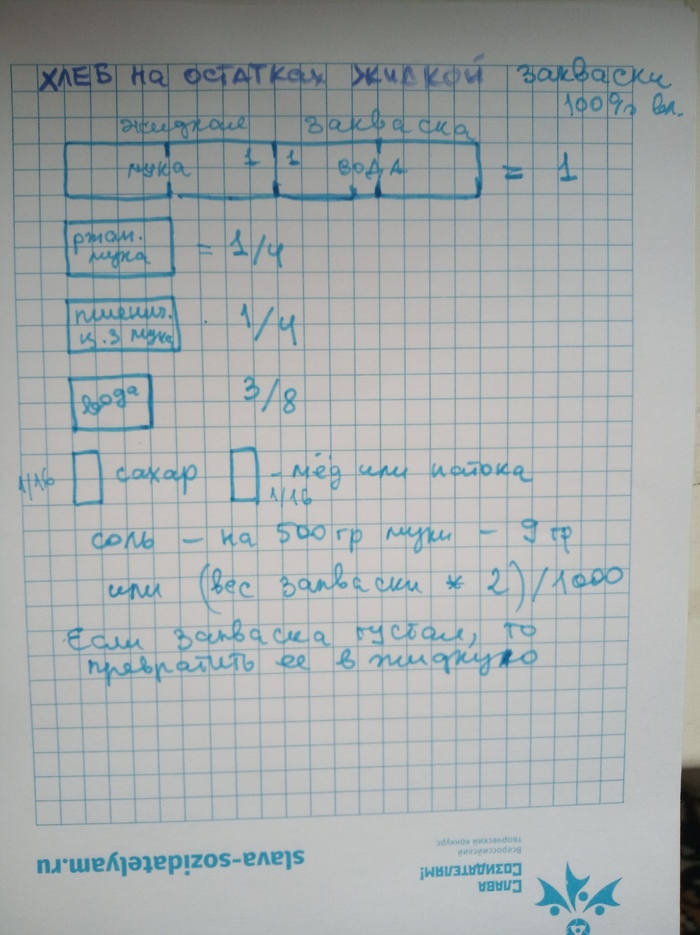 ХЛЕБ на остатках жидкой закваски
100% вл.
жидкая закваска
мука 1 1 вода = 1
ржан. мука = 1/4
пшенич. ц.з мука 1/4
вода 3/8
1/16 сахар - мёд или патока
1/16
соль - на 500 гр муки - 9 гр
или (вес закваски * 2)/1000
Если закваска густая, то
превратить ее в жидкую
slava-sozidatelyam.ru
Всероссийский
творческий конкурс
СЛАВА
СОЗИДАТЕЛЯМ!